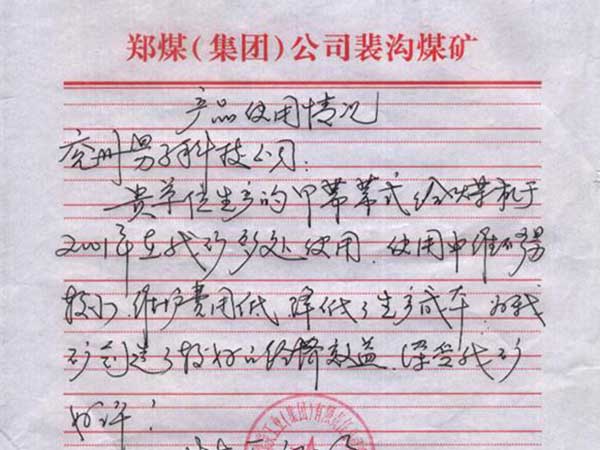 郑煤(集团)公司裴沟煤矿
产品使用情况
兖州 科技公司:
贵单位生产的甲带带式给煤机于
2001年在我矿多处使用.使用中维
较小.维护费用低.降低了生产成本.为我
矿创造了较好的经济效益.深受我矿
好评!
(集团)有限责任